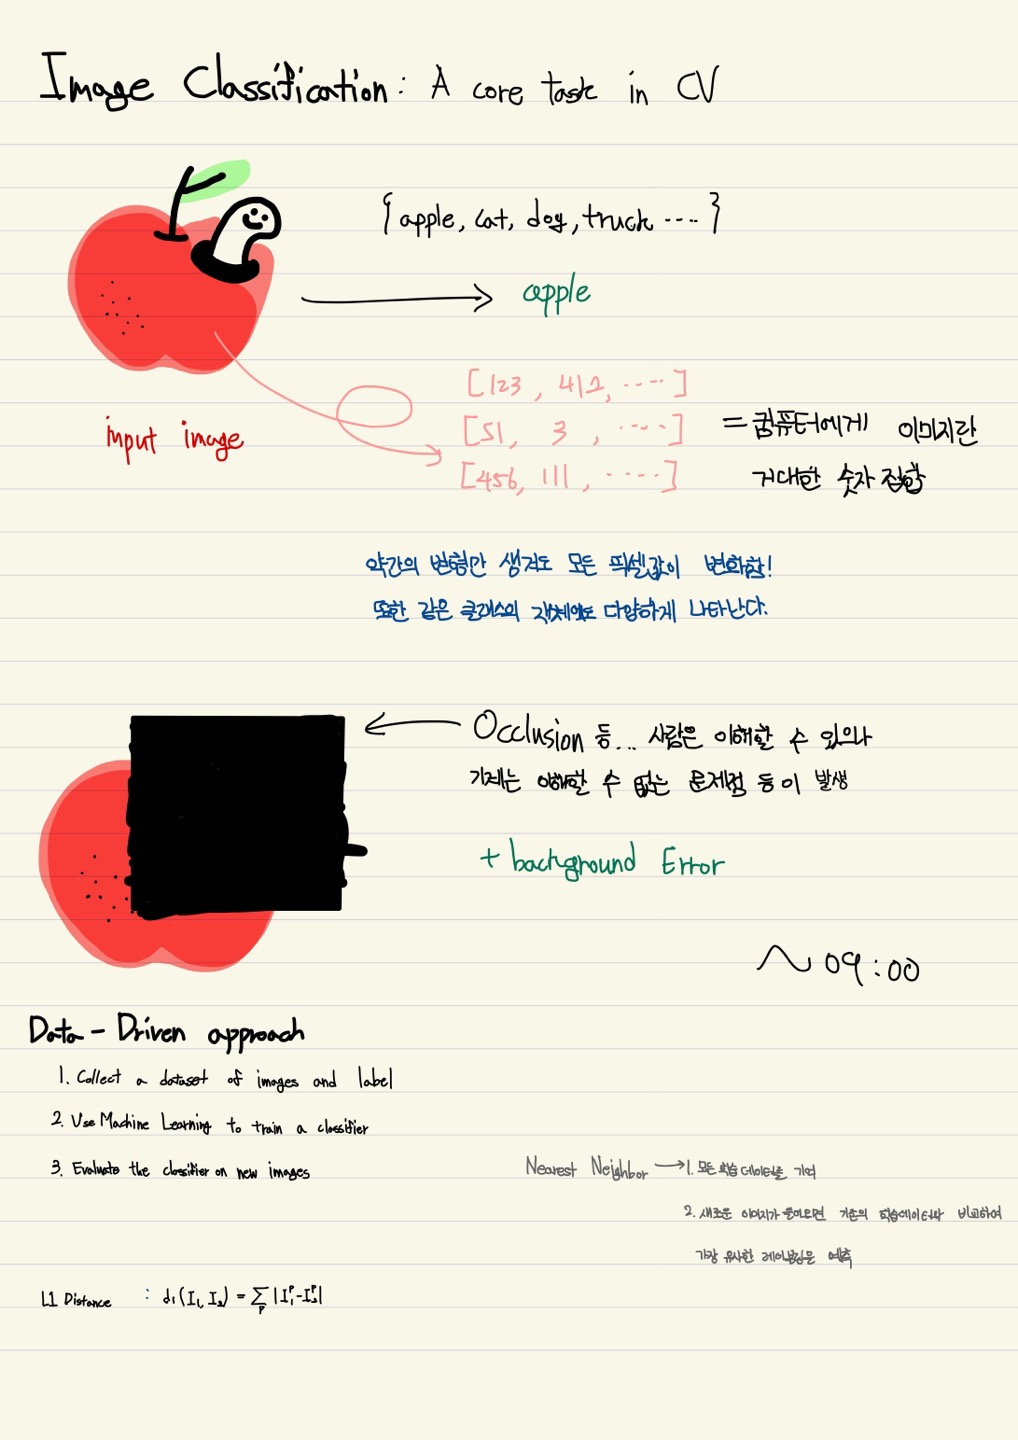 Image Classification : A core task in CV
{ apple, cat, dog, truck ---- }
apple
input image
[123 , 412, ----- ]
[51, 3 , ----- ]
[456, 111 , ----- ]
= 컴퓨터에게 이미지란
거대한 숫자 집합
약간의 변형만 생겨도 모든 픽셀값이 변화함!
또한 같은 클래스의 객체에도 다양하게 나타난다.
Occlusion 등... 사람은 이해할 수 있으나
기계는 이해할 수 없는 문제점 등이 발생
+ background Error
~ 09:00
Data - Driven approach
1. Collect a dataset of images and label
2. Use Machine Learning to train a classifier
3. Evaluate the classifier on new images
Nearest Neighbor → 1. 모든 학습 데이터를 기억
2. 새로운 이미지가 들어오면 기존의 학습데이터와 비교하여
가장 유사한 레이블링을 예측
L1 Distance : d₁(I₁, I₂) = ∑ₚ |I₁ᵖ - I₂ᵖ|